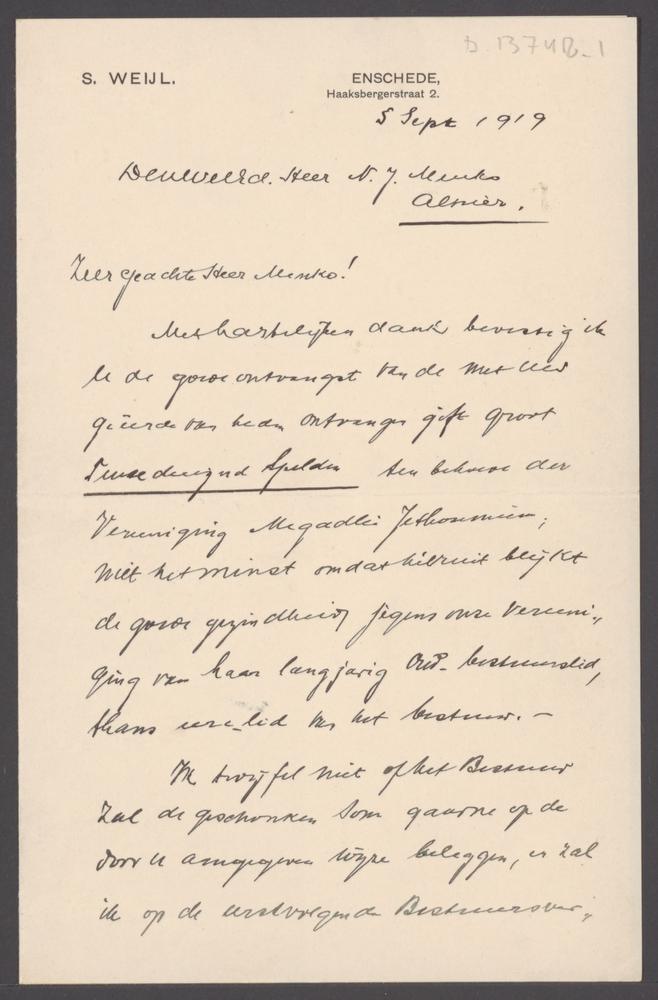 D. B74B-1
S. WEIJL.
ENSCHEDE,
Haaksbergerstraat 2.
5 Sept 1919
Den Weled. Heer N. J. Menko
Alhier.
Zeer geachte Heer Menko!
Met hartelijken dank bevestig ik
U de goede ontvangst van de met Uw
van heden ontvangen gift groot
duizend Gulden ten behoeve der
Vereeniging Megadlei Jethoumim,
niet het minst omdat hieruit blijkt
de goede gezindheid jegens onze Vereeni„
ging van haar langjarig Oud-bestuurslid,
thans eere-lid van het bestuur. —
Ik twijfel niet of het Bestuur
zal de geschonken som gaarne op de
door U aangegeven wijze beleggen, en zal
ik op de eerstvolgende Bestuursver„